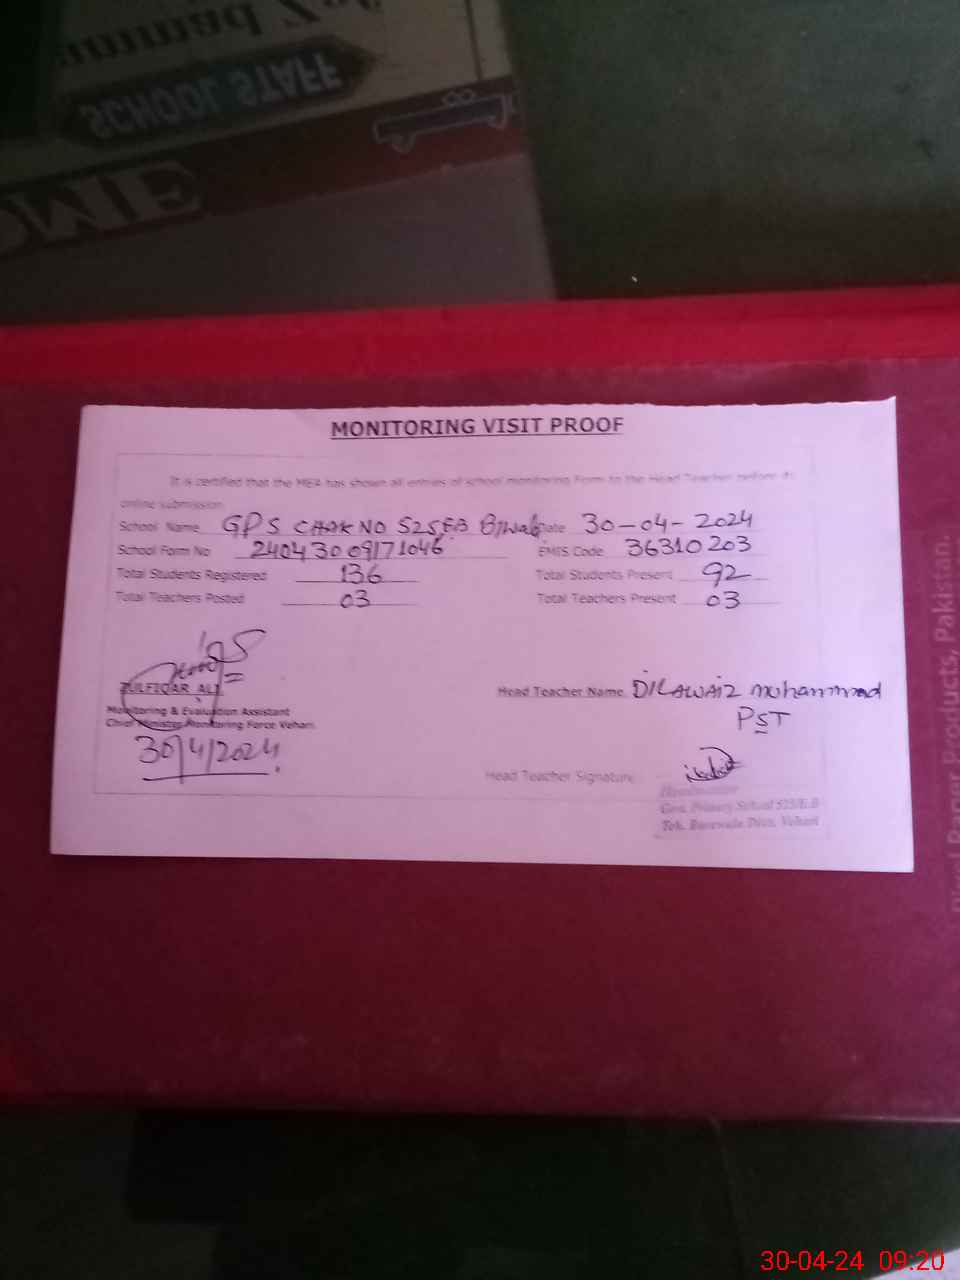 SCHOOL STAFF
MONITORING VISIT PROOF
It is certified that the MEA has shown all entries of school monitoring Form to the Head Teacher before its
online submission
School Name GPS CHAK NO 525EB Date 30-04-2024
School Form No 24043009171046 EMIS Code 36310203
Total Students Registered 136 Total Students Present 92
Total Teachers Posted 03 Total Teachers Present 03
ZULFIQAR ALI
Monitoring & Evaluation Assistant
Chief Minister Monitoring Force Vehari
30/4/2024
Head Teacher Name DILAWAIZ Muhammad
PST
Head Teacher Signature
Headmaster
Govt. Primary School 525/E.B
Teh. Burewala Distt. Vehari
Paper Products, Pakistan.
30-04-24 09:20